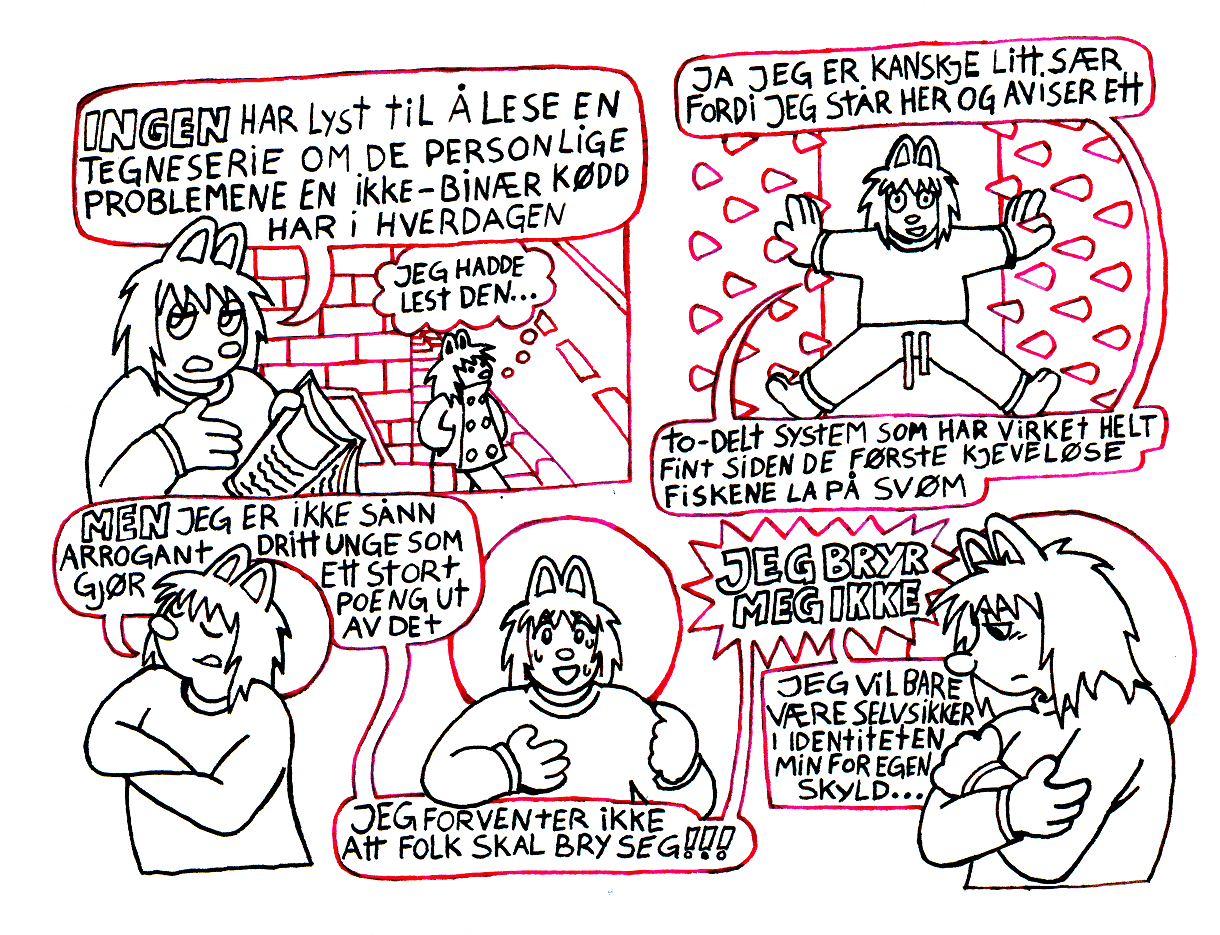 INGEN HAR LYST TIL Å LESE EN
TEGNESERIE OM DE PERSONLIGE
PROBLEMENE EN IKKE-BINÆR KØDD
HAR I HVERDAGEN
JEG HADDE
LEST DEN...
JA JEG ER KANSKJE LITT SÆR
FORDI JEG STÅR HER OG AVISER ETT
TO-DELT SYSTEM SOM HAR VIRKET HELT
FINT SIDEN DE FØRSTE KJEVELØSE
FISKENE LA PÅ SVØM
MEN JEG ER IKKE SÅNN
ARROGANT DRITTUNGE SOM
GJØR ETT STORT
POENG UT
AV DET
JEG FORVENTER IKKE
ATT FOLK SKAL BRY SEG!!!
JEG BRYR
MEG IKKE
JEG VIL BARE
VÆRE SELVSIKKER
I IDENTITETEN
MIN FOR EGEN
SKYLD...